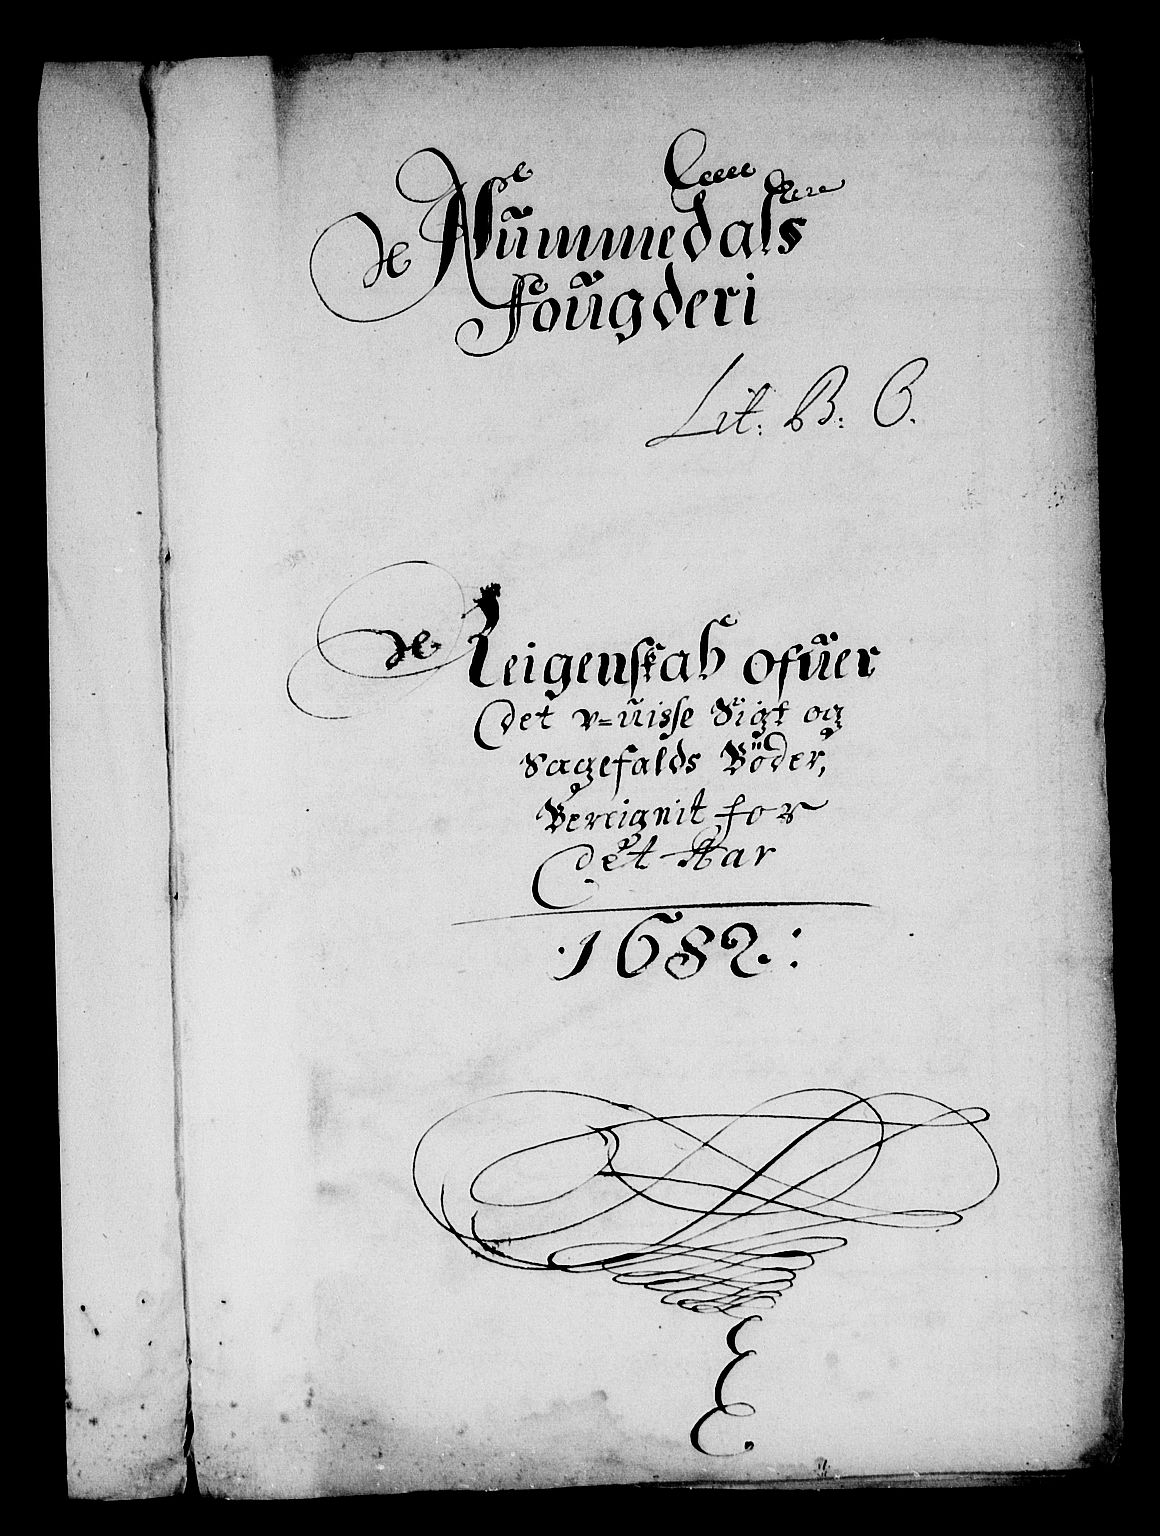 Nümmedals
Foügderi
Lit. B: C.
Reigenskab ofüer
det v=üisse Sigt og
Sagefalds Böder,
Bereignit for
det Aar
1682: